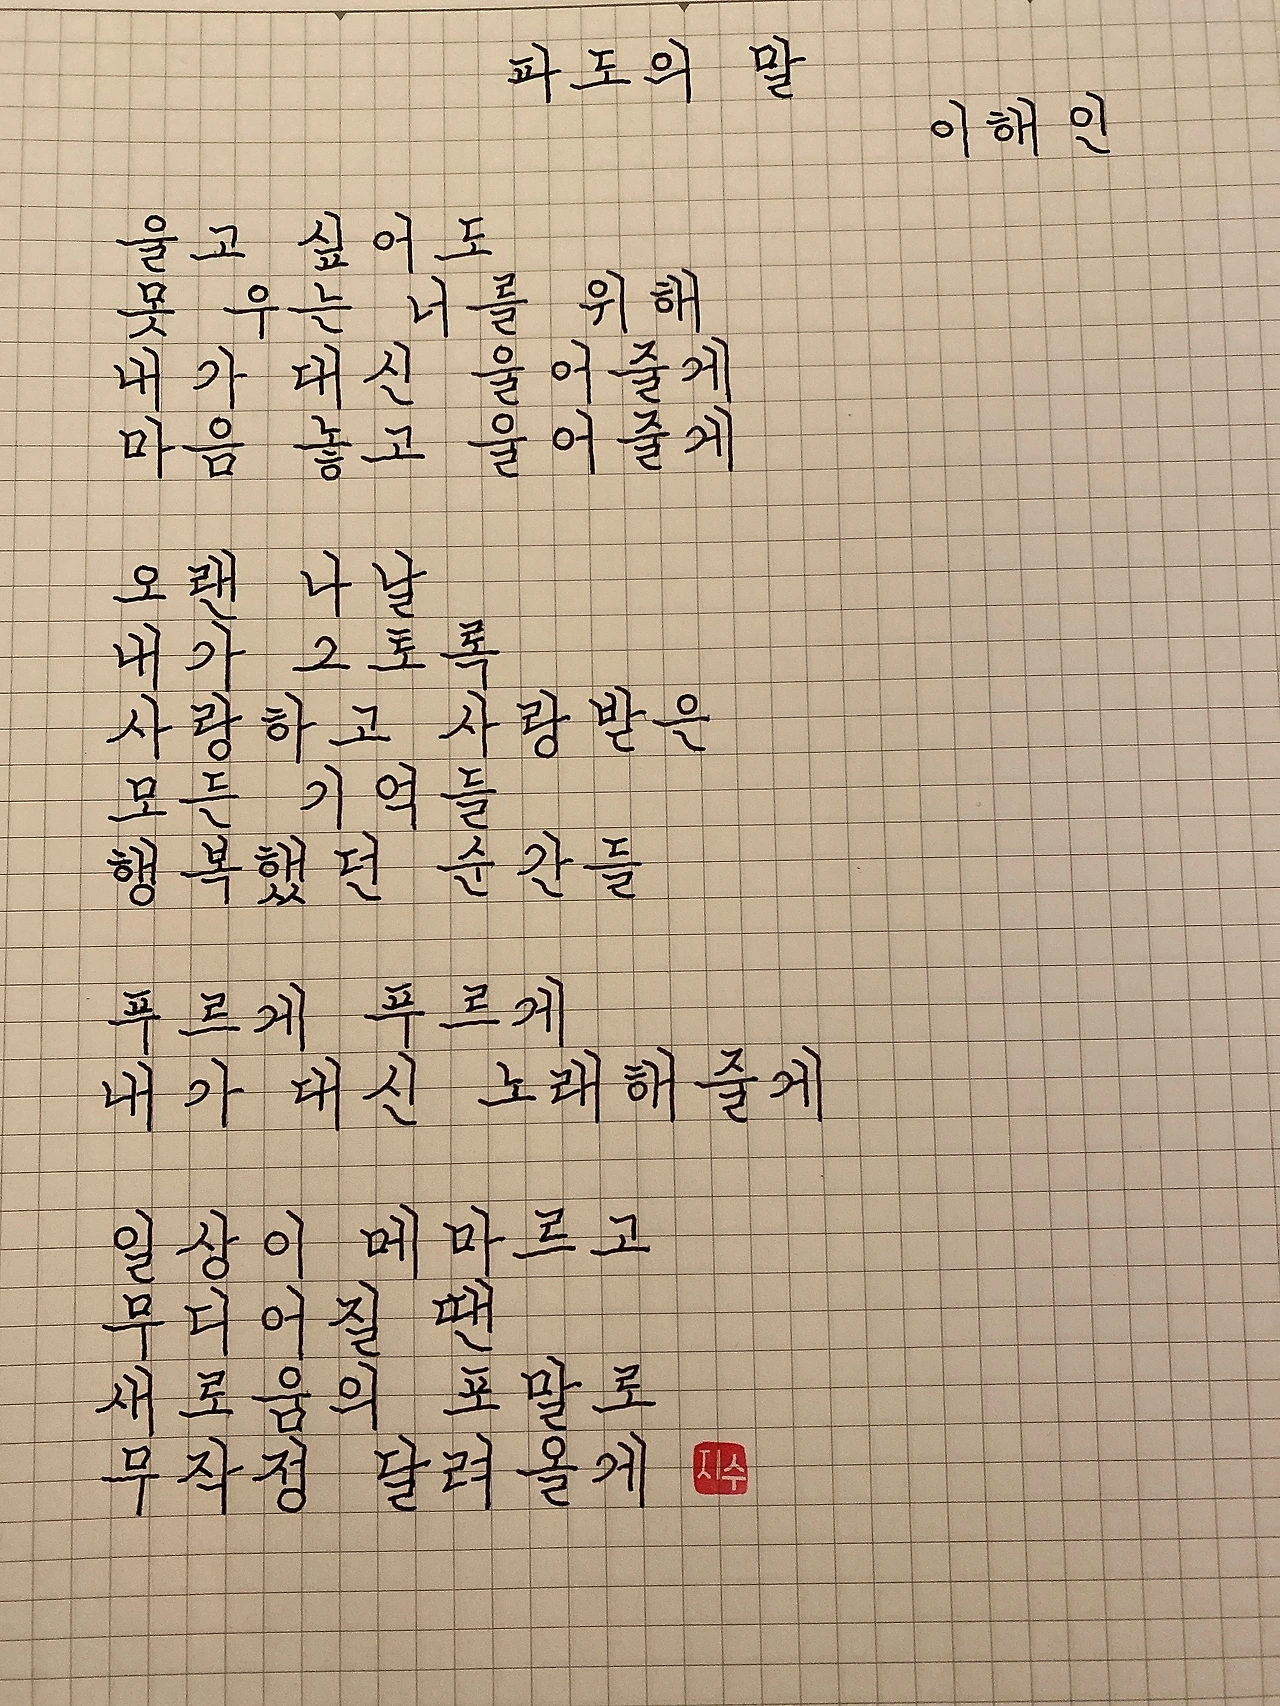 파도의 말
이해인
울고 싶어도
못 우는 너를 위해
내가 대신 울어줄게
마음 놓고 울어줄게
오랜 나날
내가 그토록
사랑하고 사랑받은
모든 기억들
행복했던 순간들
푸르게 푸르게
내가 대신 노래해줄게
일상이 메마르고
무디어질 땐
새로움의 포말로
무작정 달려올게
지수